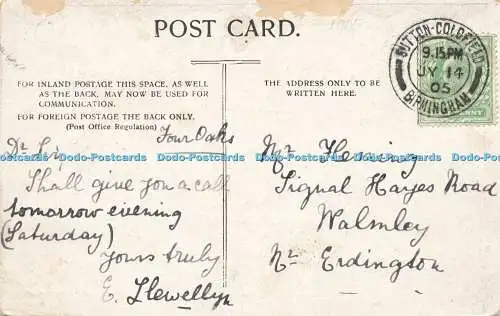 POST CARD.
FOR INLAND POSTAGE THIS SPACE, AS WELL
AS THE BACK, MAY NOW BE USED FOR
COMMUNICATION.
FOR FOREIGN POSTAGE THE BACK ONLY.
(Post Office Regulation)
THE ADDRESS ONLY TO BE
WRITTEN HERE.
SUTTON-COLDFIELD
9.15PM
JY 14
05
BIRMINGHAM
Four Oaks
Dr Sir,
Shall give you a call
tomorrow evening
(Saturday)
Yours truly
E. Llewellyn
Mr
Signal Hayes Road
Walmley
Nr Erdington
Dodo-Postcards Dodo-Postcards Dodo-Postcards Dodo-Postcards Dodo-Postcards Dodo-Postcards